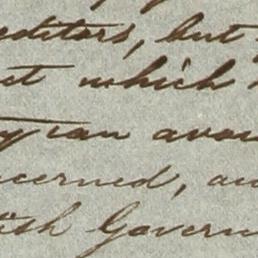 editors, but
ct which
y can avow
ncerned, an
ish Govern